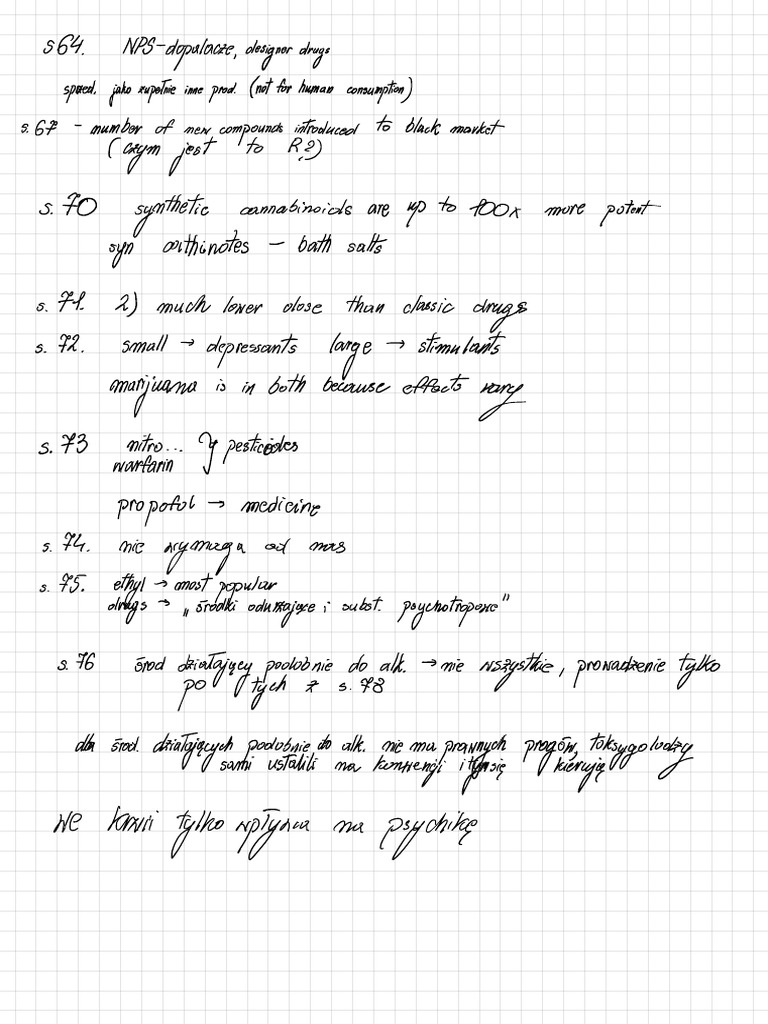 s64. NPS-dopalacze, designer drugs
sprzed. jako zupełnie inne prod. (not for human consumption)
s.67 - number of new compounds introduced to black market
(czym jest to R?)
s.70 synthetic cannabinoids are up to 100x more potent
syn cathinotes - bath salts
s. 71. 2) much lower dose than classic drugs
s. 72. small → depressants large → stimulants
marijuana is in both because effects vary
s.73 nitro... } pesticides
warfarin
propoful → medicine
s. 74. nie wymaga od nas
s. 75. ethyl → most popular
drugs → „środki odurzające i subst. psychotropowe"
s.76 środ działający podobnie do alk. → nie wszystkie, prowadzenie tylko
po tych z s.78
dla środ. działających podobnie do alk. nie ma prawnych progów, toksygolodzy
sami ustalili na konwencji i tym się kierują
we krwi tylko wpływa na psychikę